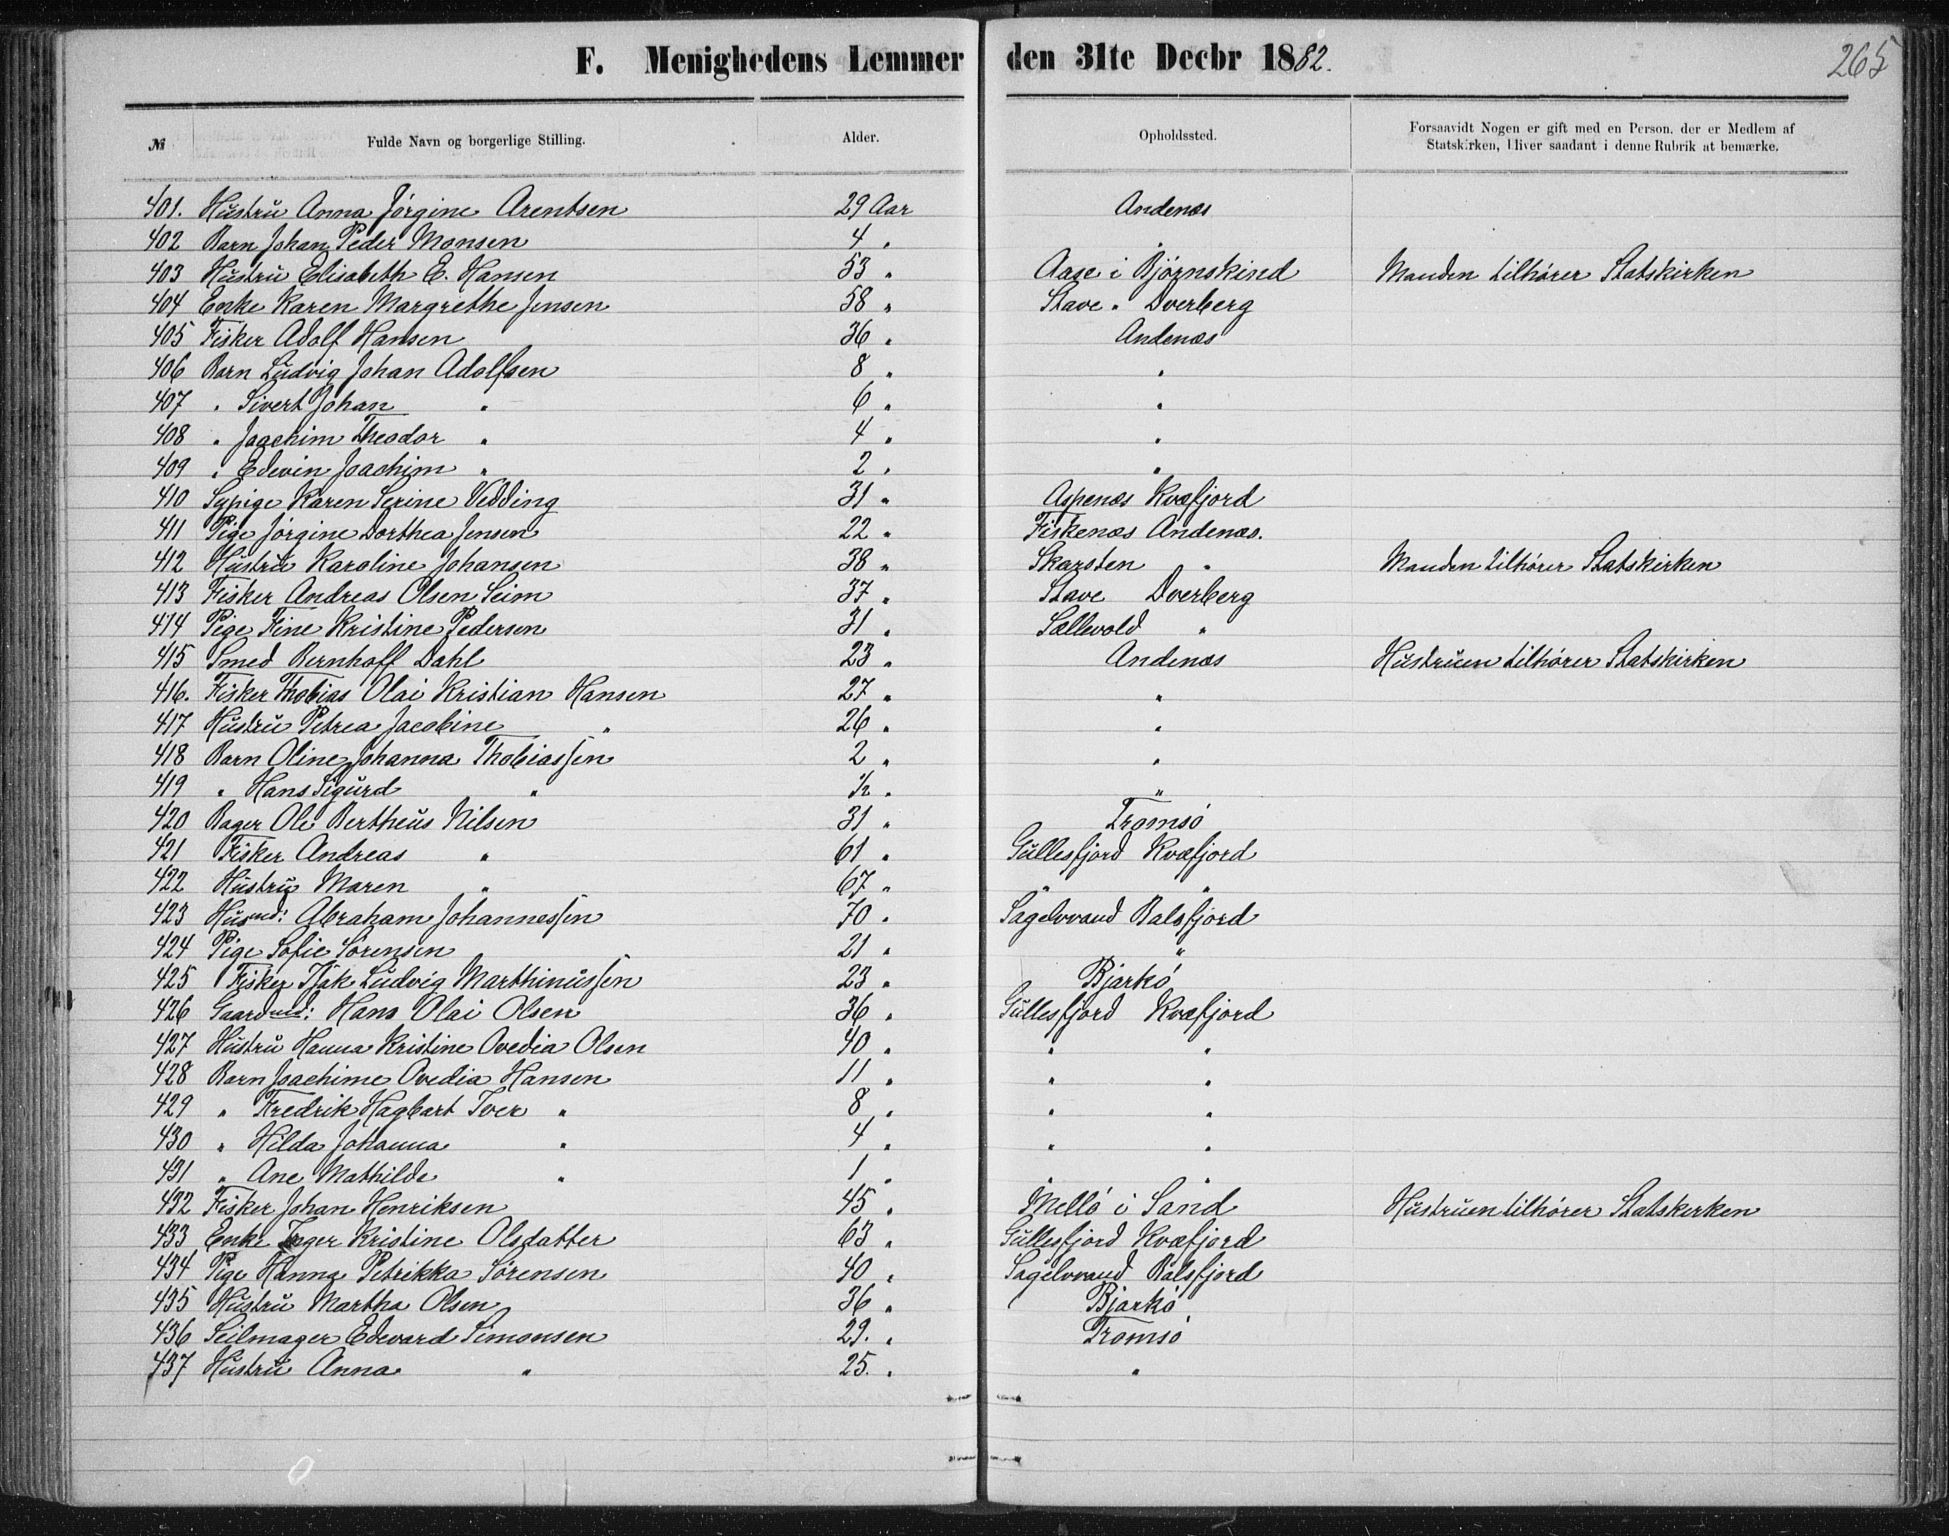 265
F. Menighedens Lemmer den 31te Decbr 1882.
№ Fulde Navn og borgerlige Stilling. Alder. Opholdssted. Forsaavidt Nogen er gift med en Person, der er Medlem af
Statskirken, bliver saadant i denne Rubrik at bemærke.
401. Hustru Anna Jørgine Arentsen 29 Aar Andenæs
402 Barn Johan Peder Monsen 4 " "
403 Hustru Elisabeth E. Hansen 53 " Aase i Bjørnskind Manden tilhører Statskirken
404 Enke Karen Margrethe Jensen 58 " Stave " Dverberg
405 Fisker Adolf Hansen 36 " Andenæs
406 Barn Ludvig Johan Adolfsen 8 " "
407 " Sivert Johan " 6 " "
408 " Joachim Theodor " 4 " "
409 " Edevin Joachim " 2 " "
410 Sypige Karen Serine Vedding 31 " Aspenæs Kvæfjord
411 Pige Jørgine Dorthea Jensen 22 " Fiskenæs Andenæs.
412 Hustru Karoline Johansen 38 " Skarsten " Manden tilhører Statskirken
413 Fisker Andreas Olsen Seim 37 " Stave Dverberg
414 Pige Fine Kristine Pedersen 31 " Sællevold "
415 Smed Bernhoff Dahl 23 " Andenæs Hustruen tilhører Statskirken
416. Fisker Thobias Olai Kristian Hansen 27 " "
417 Hustru Petrea Jacobine " 26 " "
418 Barn Oline Johanna Thobiassen 2 " "
419 " Hans Sigurd " ½ " "
420 Bager Ole Bertheus Nilsen 31 " Tromsø
421 Fisker Andreas " 61 " Gullesfjord Kvæfjord
422 Hustru Maren " 67 " " "
423 Husmd: Abraham Johannessen 70 " Sagelvvand Balsfjord
424 Pige Sofie Sørensen 21 " " "
425 Fisker Isak Ludvig Marthinussen 23 " Bjarkø
426 Gaardmd: Hans Olai Olsen 36 " Gullesfjord Kvæfjord
427 Hustru Hanna Kristine Ovedia Olsen 40 " " "
428 Barn Joachime Ovedia Hansen 11 " " "
429 " Fredrik Hagbart Iver " 8 " " "
430 " Hilda Johanna " 4 " " "
431 " Ane Mathilde " 1 " " "
432 Fisker Johan Henriksen 45 " Mellø i Sand Hustruen tilhører Statskirken
433 Enke Inger Kristine Olsdatter 63 " Gullesfjord Kvæfjord
434 Pige Hanna Petrikka Sørensen 40 " Sagelvvand Balsfjord
435 Hustru Martha Olsen 36 " Bjarkø
436 Seilmager Edevard Simonsen 29. " Tromsø
437 Hustru Anna " 25. " "